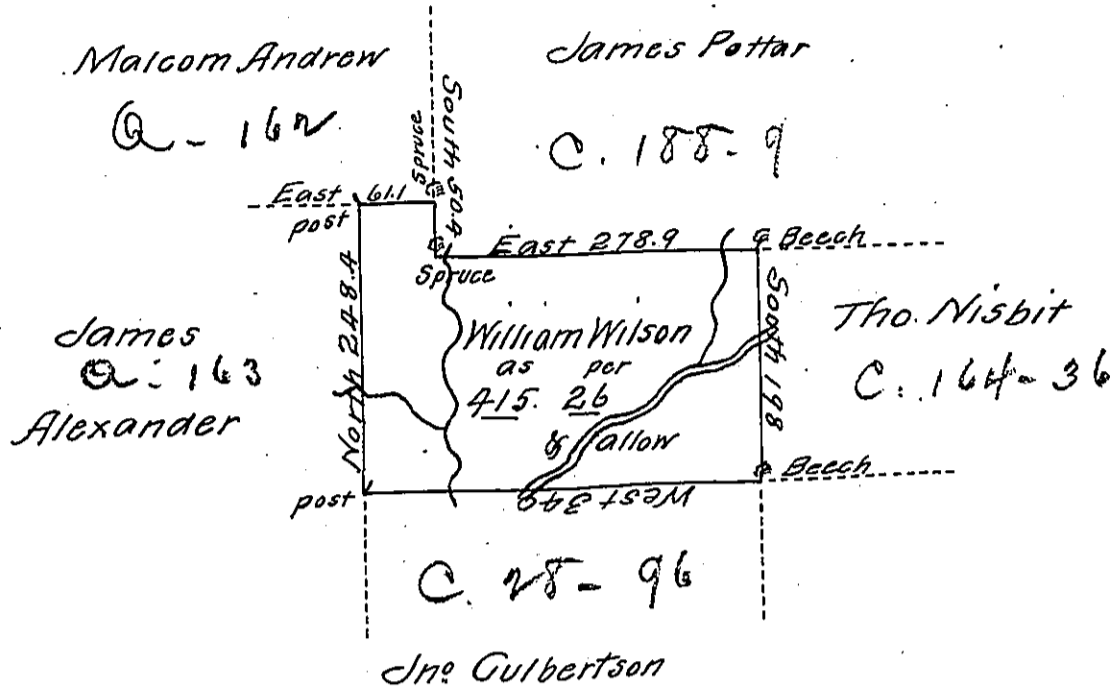 Malcom Andrew
Q - 162
James Pottar
C. 188 - 9
Spruce
South 50.4
East 61.1
post
Spruce
East 278.9
Beech
North 248.4
James
Q - 163
Alexander
William Wilson
as per
415. 26
& allow
South 198
Tho. Nisbit
C. 164 - 36
Beech
post
West 340
C. 28 - 96
Jno Culbertson